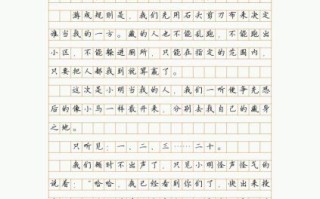 游戏规则是，我们先用石头剪刀布来决定
谁当我的一方。藏的人也不能乱跑，不能跑出
小区，不能躲进厕所，只能在指定的范围内，
只要把人都找到就算赢了。
这次是小明当我的人，我们一听便争先恐
后的像小鸟一样散开来，分别去找自己的藏身
之地。
只听见：一、二、三……二十。
我们顿时不出声了，只见小明怪声怪气的
说着：“哈哈，我已经看到你们了，快出来投